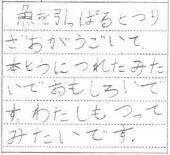 魚を引っぱるとつり
ざおがうごいて、
本とうにつれたみた
いでおもしろいで
す。わたしもつって
みたいです。